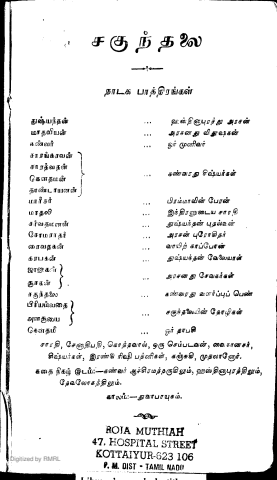 சகுந்தலை
நாடக பாத்திரங்கள்
துஷ்யந்தன் ... ஹஸ்தினாபுரத்து அரசன்
மாதவ்யன் ... அரசனது விதூஷகன்
கண்வர் ... ஓர் முனிவர்
சாரங்கரவன்
சாரத்வதன்
கௌதமன்
... கண்வரது சிஷ்யர்கள்
மாரீசர் ... பிரம்மாவின் பேரன்
மாதலி ... இந்திரனுடைய சாரதி
சர்வதமனன் ... துஷ்யந்தன் புதல்வன்
சோமராதர் ... அரசன் புரோகிதர்
ரைவதகன் ... வாயிற் காப்போன்
கரபகன் ... துஷ்யந்தன் வேலையாள்
ஜானுகன்
சூசகன்
... அரசனது சேவகர்கள்
சகுந்தலை ... கண்வரது வளர்ப்புப் பெண்
பிரியம்வதை
அனசூயை
... சகுந்தலையின் தோழிகள்
கௌதமீ ... ஓர் தாபசி
சாரதி, சேனாதிபதி, கொத்தவால், ஒரு செம்படவன், வைகானசர்,
சிஷ்யர்கள், இரண்டு ரிஷி பத்னிகள், கஞ்சுகி, முதலானோர்.
கதை நிகழ் இடம்:—கண்வர் ஆச்ரமவத்தருகிலும், ஹஸ்தினாபுரத்திலும்,
தேவலோகத்திலும்.
காலம்:—துவாபரயுகம்.
ROJA MUTHIAH
47. HOSPITAL STREET
KOTTAIYUR-623 106
P. M. DIST - TAMIL NADU
Digitized by RMRL